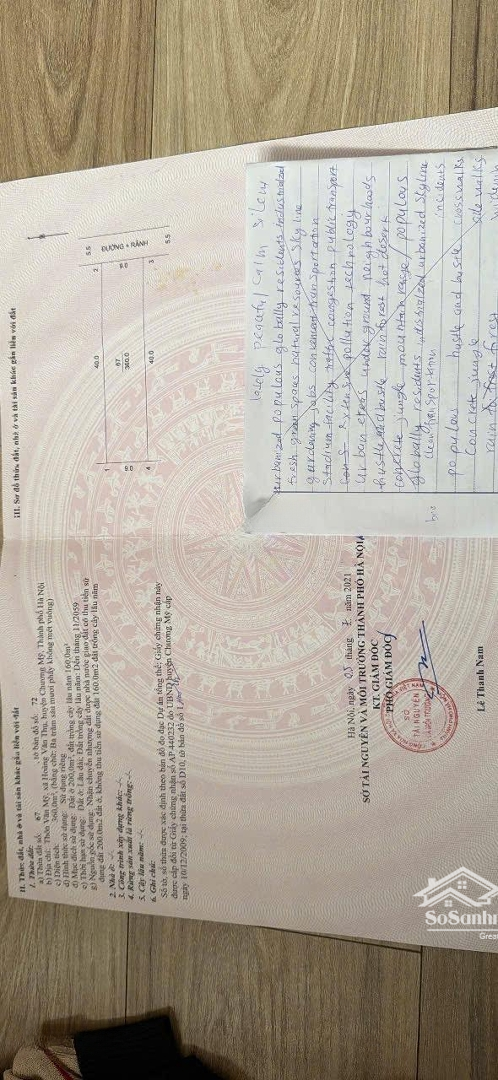 II. Thửa đất, nhà ở và tài sản khác gắn liền với đất
1. Thửa đất:
a) Thửa đất số: 67 , tờ bản đồ số: 72
b) Địa chỉ: Thôn Văn Mỹ, xã Hoàng Văn Thụ, huyện Chương Mỹ, Thành phố Hà Nội
c) Diện tích: 360,0m², (bằng chữ: Ba trăm sáu mươi phẩy không mét vuông)
d) Hình thức sử dụng: Sử dụng riêng
đ) Mục đích sử dụng: Đất ở 200,0m², đất trồng cây lâu năm 160,0m²
e) Thời hạn sử dụng: Đất ở: Lâu dài; Đất trồng cây lâu năm: Đến tháng 11/2059
g) Nguồn gốc sử dụng: Nhận chuyển nhượng đất được nhà nước giao đất có thu tiền sử
dụng đất 200.0m2 đất ở, không thu tiền sử dụng đất 160.0m2 đất trồng cây lâu năm
2. Nhà ở: -/-
3. Công trình xây dựng khác: -/-
4. Rừng sản xuất là rừng trồng: -/-
5. Cây lâu năm: -/-
6. Ghi chú:
Số tờ, số thửa được xác định theo bản đồ đo đạc Dự án tổng thể; Giấy chứng nhận này
được cấp đổi từ Giấy chứng nhận số AP 440232 do UBND huyện Chương Mỹ cấp
ngày 10/12/2009, tại thửa đất số D10, tờ bản đồ số
III. Sơ đồ thửa đất, nhà ở và tài sản khác gắn liền với đất
5.5
ĐƯỜNG + RÃNH
5.5
2
9.0
3
40.0
67
360.0
40.0
1
9.0
4
Hà Nội, ngày 03 tháng năm 2021
SỞ TÀI NGUYÊN VÀ MÔI TRƯỜNG THÀNH PHỐ HÀ NỘI
KT. GIÁM ĐỐC
PHÓ GIÁM ĐỐC
SỞ
TÀI NGUYÊN
Lê Thanh Nam
lovely peaceful calm silent
urbanized populous globally residents industrialized
fresh green space natural resources sky line
gardening jobs convenient transportation
Stadium facility traffic congestion public transport
Extensive pollution technology
urban etress underground neighbourhoods
hustle and bustle rain forest hot desert
concrete jungle mountain range / populous
globally residents urbanized skyline
clean transportation incidents
populous hustle and bustle crosswalks
Concrete jungle side walks
rain forest forest
SoSanhn
Gree